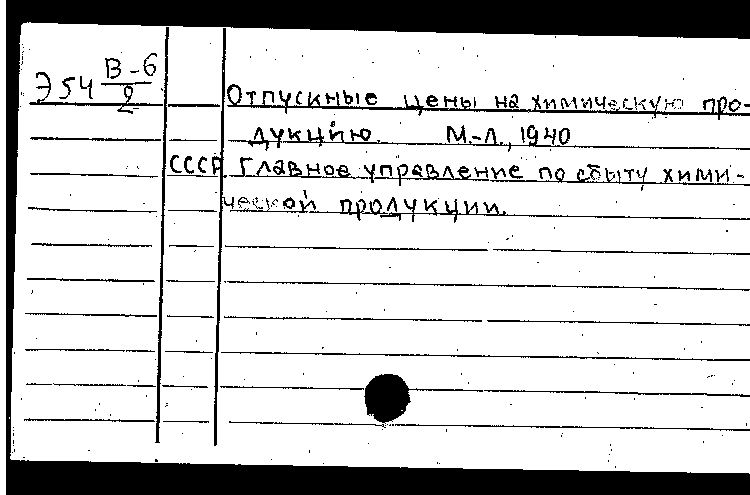 Э54 В-6/2
Отпускные цены на химическую про-
дукцию. М.-Л., 1940
СССР Главное управление по сбыту хими-
ческой продукции.